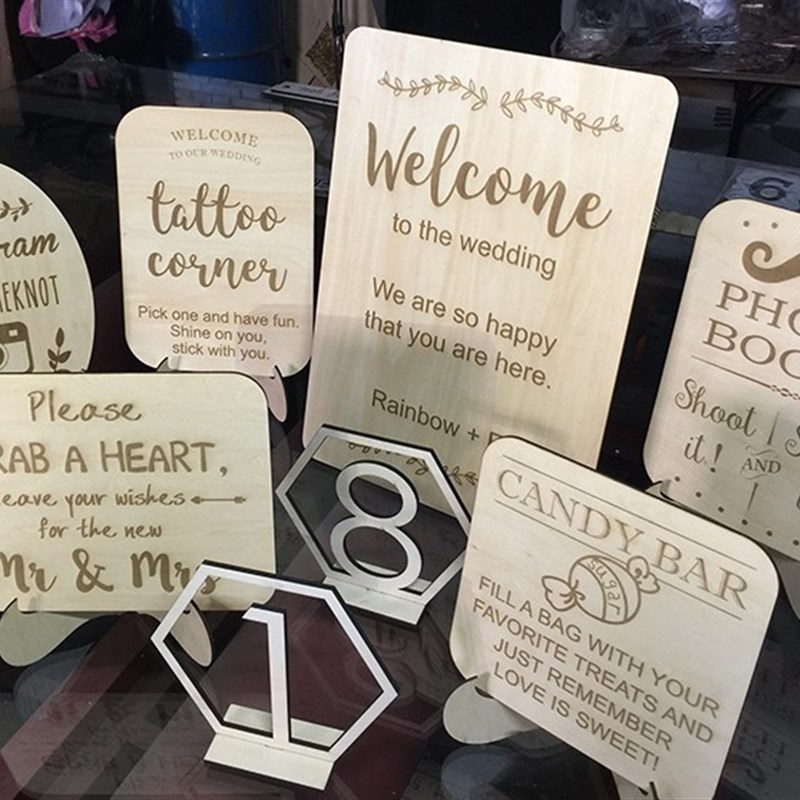 WELCOME
TO OUR WEDDING
tattoo
corner
Pick one and have fun.
Shine on you,
stick with you.
Welcome
to the wedding
We are so happy
that you are here.
Rainbow +
Please
A HEART,
your wishes
for the new
Mr & Mrs
8
1
CANDY BAR
sugar
FILL A BAG WITH YOUR
FAVORITE TREATS AND
JUST REMEMBER
LOVE IS SWEET!
Shoot
it! AND
6